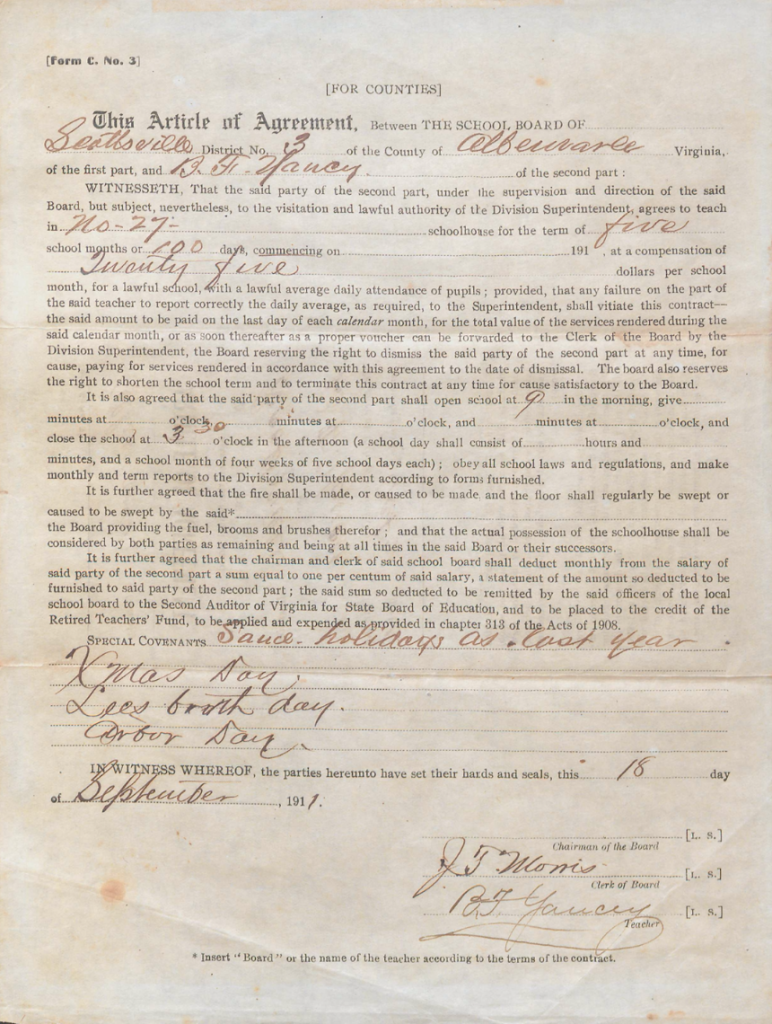 [Form C. No. 3]
[FOR COUNTIES]
This Article of Agreement, Between THE SCHOOL BOARD OF
Scottsville District No. 3 of the County of Albemarle Virginia,
of the first part, and B. F. Yancey. of the second part :
WITNESSETH, That the said party of the second part, under the supervision and direction of the said
Board, but subject, nevertheless, to the visitation and lawful authority of the Division Superintendent, agrees to teach
in No-27- schoolhouse for the term of five
school months or 100 days, commencing on 191 , at a compensation of
Twenty five dollars per school
month, for a lawful school, with a lawful average daily attendance of pupils ; provided, that any failure on the part of
the said teacher to report correctly the daily average, as required, to the Superintendent, shall vitiate this contract—
the said amount to be paid on the last day of each calendar month, for the total value of the services rendered during the
said calendar month, or as soon thereafter as a proper voucher can be forwarded to the Clerk of the Board by the
Division Superintendent, the Board reserving the right to dismiss the said party of the second part at any time, for
cause, paying for services rendered in accordance with this agreement to the date of dismissal. The board also reserves
the right to shorten the school term and to terminate this contract at any time for cause satisfactory to the Board.
It is also agreed that the said party of the second part shall open school at 9 in the morning, give
minutes at o'clock, minutes at o'clock, and minutes at o'clock, and
close the school at 3.30 o'clock in the afternoon (a school day shall consist of hours and
minutes, and a school month of four weeks of five school days each) ; obey all school laws and regulations, and make
monthly and term reports to the Division Superintendent according to forms furnished.
It is further agreed that the fire shall be made, or caused to be made and the floor shall regularly be swept or
caused to be swept by the said*
the Board providing the fuel, brooms and brushes therefor ; and that the actual possession of the schoolhouse shall be
considered by both parties as remaining and being at all times in the said Board or their successors.
It is further agreed that the chairman and clerk of said school board shall deduct monthly from the salary of
said party of the second part a sum equal to one per centum of said salary, a statement of the amount so deducted to be
furnished to said party of the second part ; the said sum so deducted to be remitted by the said officers of the local
school board to the Second Auditor of Virginia for State Board of Education, and to be placed to the credit of the
Retired Teachers' Fund, to be applied and expended as provided in chapter 313 of the Acts of 1908.
SPECIAL COVENANTS Same holidays as last year.
Xmas Day.
Lees birth day.
Arbor Day.
IN WITNESS WHEREOF, the parties hereunto have set their hands and seals, this 18 day
of September, 1911.
[L. S.]
Chairman of the Board
J T Morris [L. S.]
Clerk of Board
B. F. Yancey [L. S.]
Teacher
* Insert "Board" or the name of the teacher according to the terms of the contract.